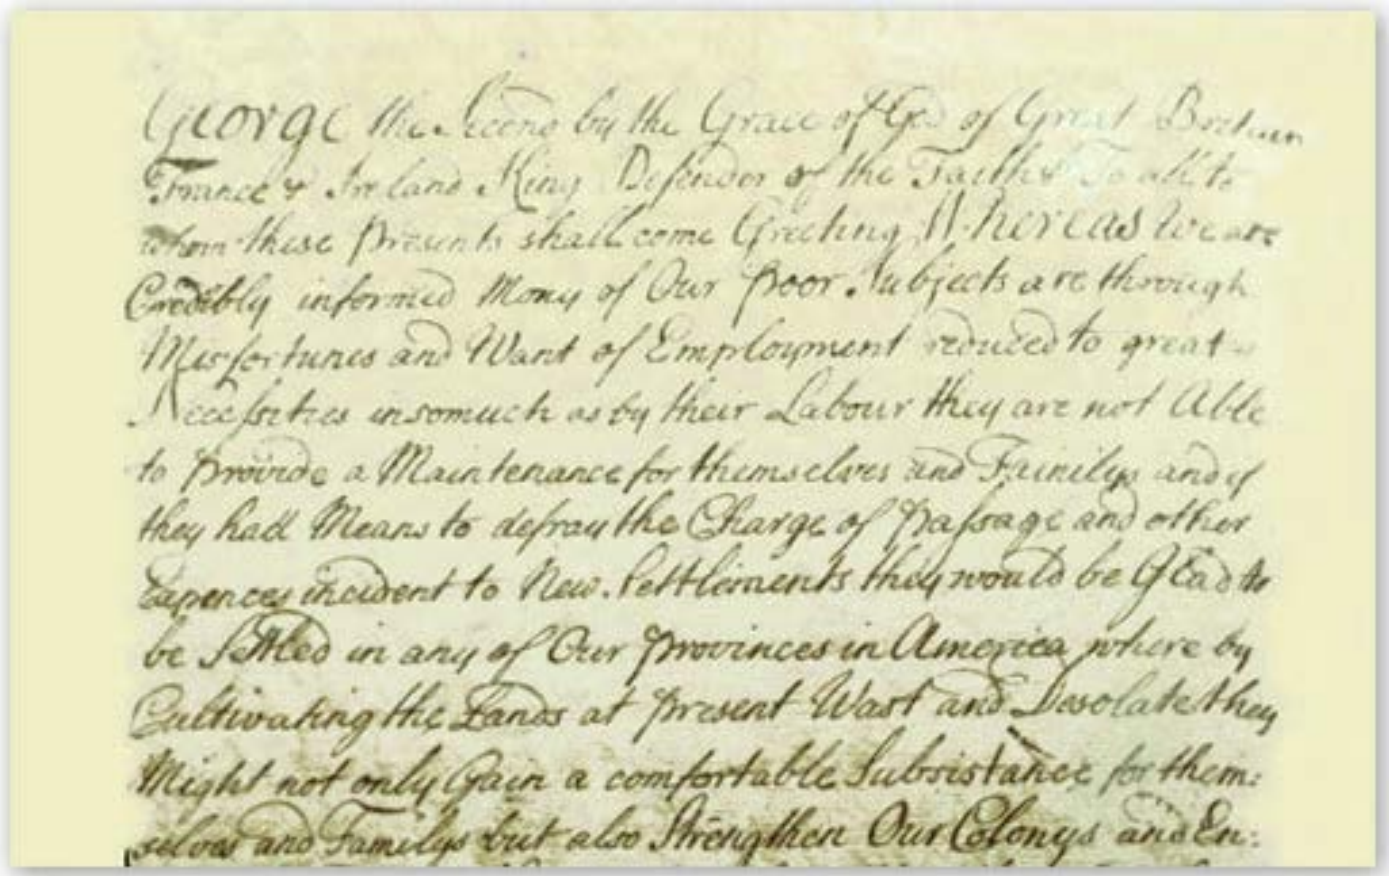 George the Second by the Grace of God of Great Britain
France & Ireland King Defender of the Faith & To all to
whom these Presents shall come Greeting Whereas We are
Credibly informed Many of Our Poor Subjects are through
Misfortunes and Want of Employment reduced to great
Necessities insomuch as by their Labour they are not Able
to Provide a Maintenance for themselves and Familys and if
they had Means to defray the Charge of Passage and other
Expences incident to New Settlements they would be Glad to
be Settled in any of Our Provinces in America where by
Cultivating the Lands at Present Wast and Desolate they
Might not only Gain a comfortable Subsistance for them:
selves and Familys but also Strengthen Our Colonys and En: